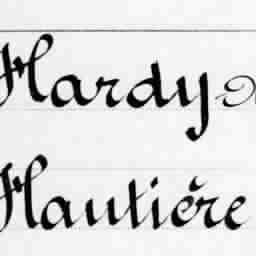 Hardy
Hautière